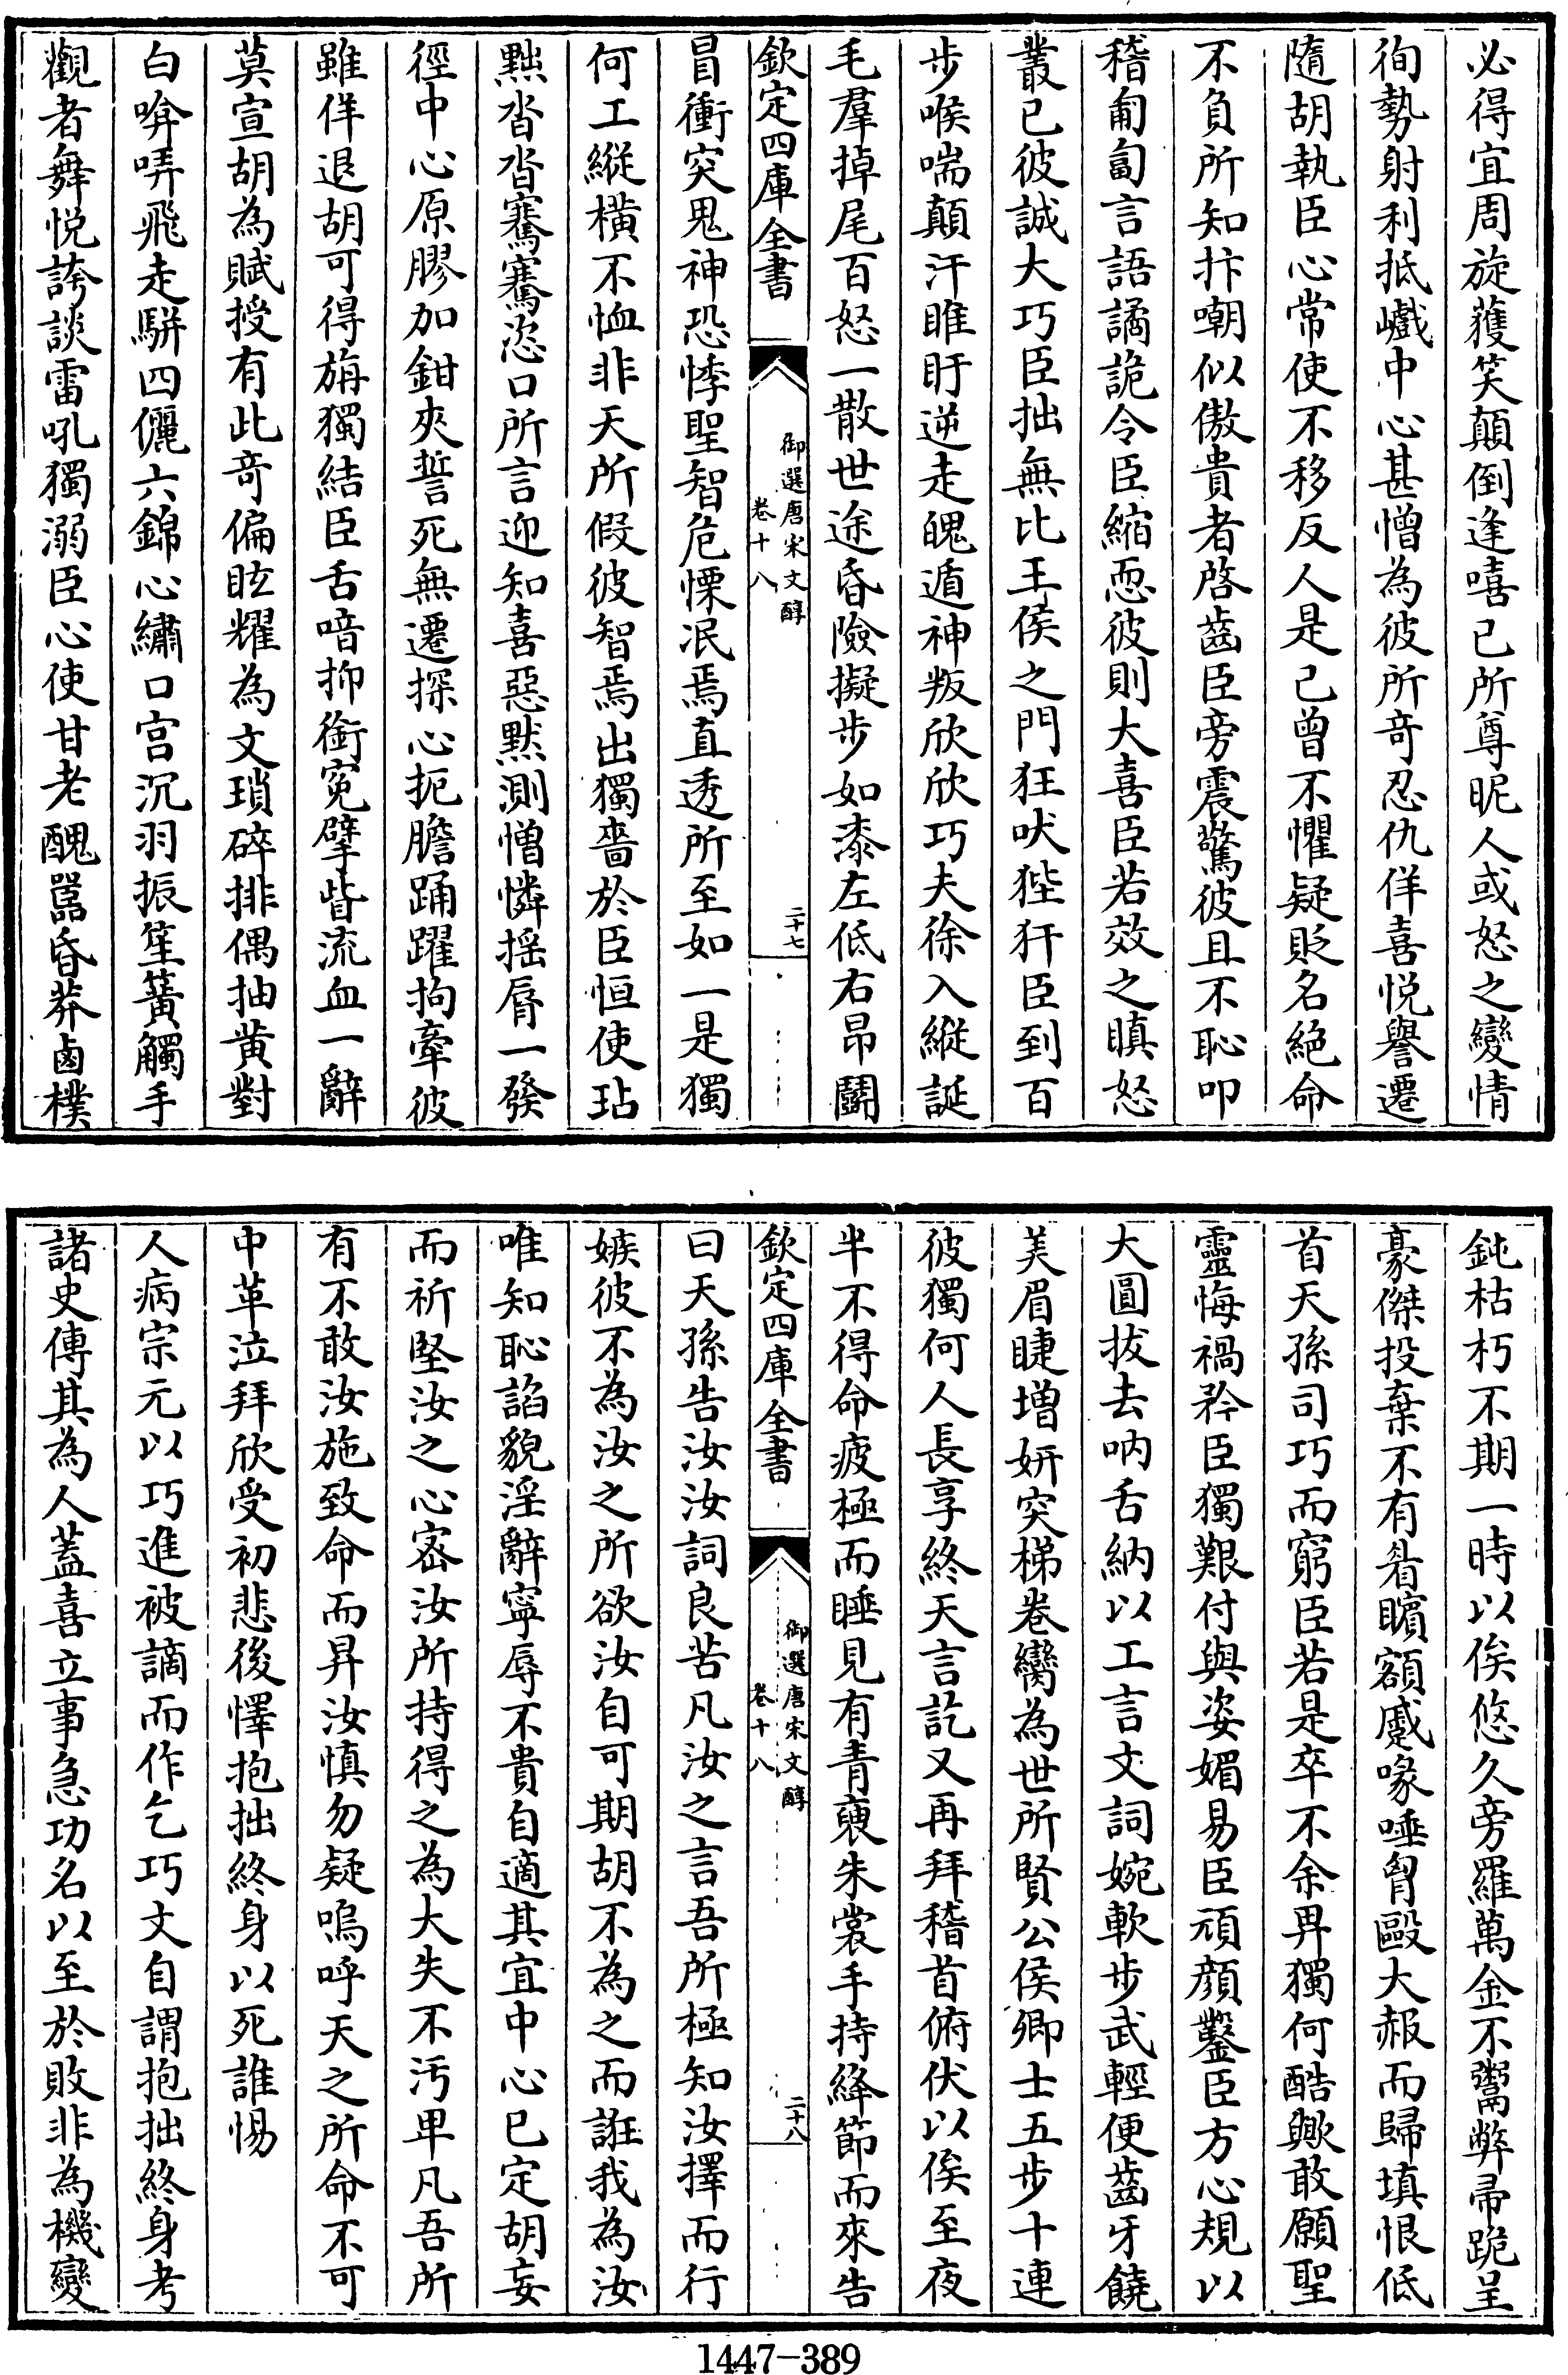 必得宜周旋獲笑顛倒逢嘻已所尊昵人或怒之變情
徇勢射利抵巇中心甚憎為彼所奇忍仇佯喜悦譽遷
隨胡執臣心常使不移反人是已曾不懼疑貶名絕命
不負所知抃嘲似傲貴者啓齒臣旁震驚彼且不恥叩
稽匍匐言語譎詭令臣縮恧彼則大喜臣若效之瞋怒
叢已彼誠大巧臣拙無比王侯之門狂吠狴犴臣到百
步喉喘顛汗睢盱逆走魄遁神叛欣欣巧夫徐入縱誕
毛羣掉尾百怒一散世途昏險擬步如漆左低右昂鬭
欽定四庫全書
御選唐宋文醇
卷十八
二十七
冒衝突鬼神恐悸聖智危慄泯焉直透所至如一是獨
何工縱橫不恤非天所假彼智焉出獨嗇於臣恒使玷
黜沓沓騫騫恣口所言迎知喜惡默測憎憐揺脣一發
徑中心原膠加鉗夾誓死無遷探心扼膽踊躍拘牽彼
雖佯退胡可得旃獨結臣舌喑抑銜寃擘眥流血一辭
莫宣胡為賦授有此奇偏眩耀為文瑣碎排偶抽黄對
白啽哢飛走駢四儷六錦心繡口宫沉羽振笙簧觸手
觀者舞悦誇談雷吼獨溺臣心使甘老醜嚚昏莽鹵樸
鈍枯朽不期一時以俟悠久旁羅萬金不鬻弊帚跪呈
豪傑投棄不有眉矉頞蹙喙唾胷歐大赧而歸填恨低
首天孫司巧而窮臣若是卒不余畀獨何酷歟敢願聖
靈悔禍矜臣獨艱付與姿媚易臣頑顔鑿臣方心規以
大圓拔去呐舌納以工言文詞婉軟步武輕便齒牙饒
美眉睫增妍突梯卷臠為世所賢公侯卿士五步十連
彼獨何人長享終天言訖又再拜稽首俯伏以俟至夜
半不得命疲極而睡見有青褏朱裳手持絳節而來告
欽定四庫全書
御選唐宋文醇
卷十八
二十八
曰天孫告汝汝詞良苦凡汝之言吾所極知汝擇而行
嫉彼不為汝之所欲汝自可期胡不為之而誑我為汝
唯知恥諂貌淫辭寧辱不貴自適其宜中心已定胡妄
而祈堅汝之心密汝所持得之為大失不污卑凡吾所
有不敢汝施致命而昇汝慎勿疑嗚呼天之所命不可
中革泣拜欣受初悲後懌抱拙終身以死誰惕
人病宗元以巧進被謫而作乞巧文自謂抱拙終身考
諸史傳其為人蓋喜立事急功名以至於敗非為機變
1447-389